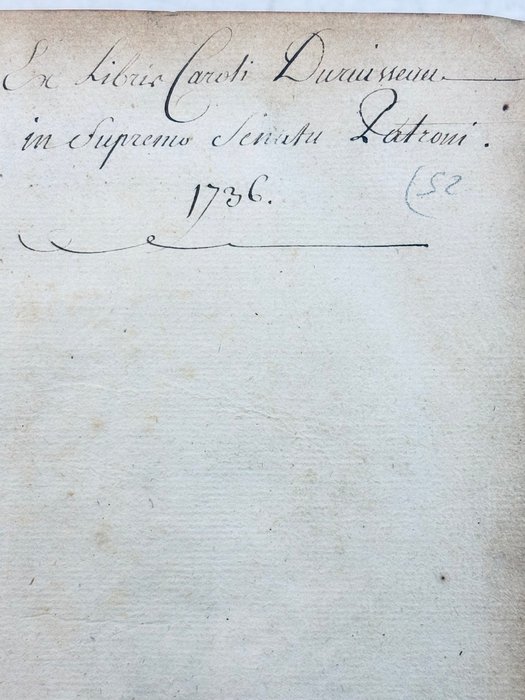 Ex Libris Caroli Duruisseau
in Supremo Senatu Patroni.
1736.
(52